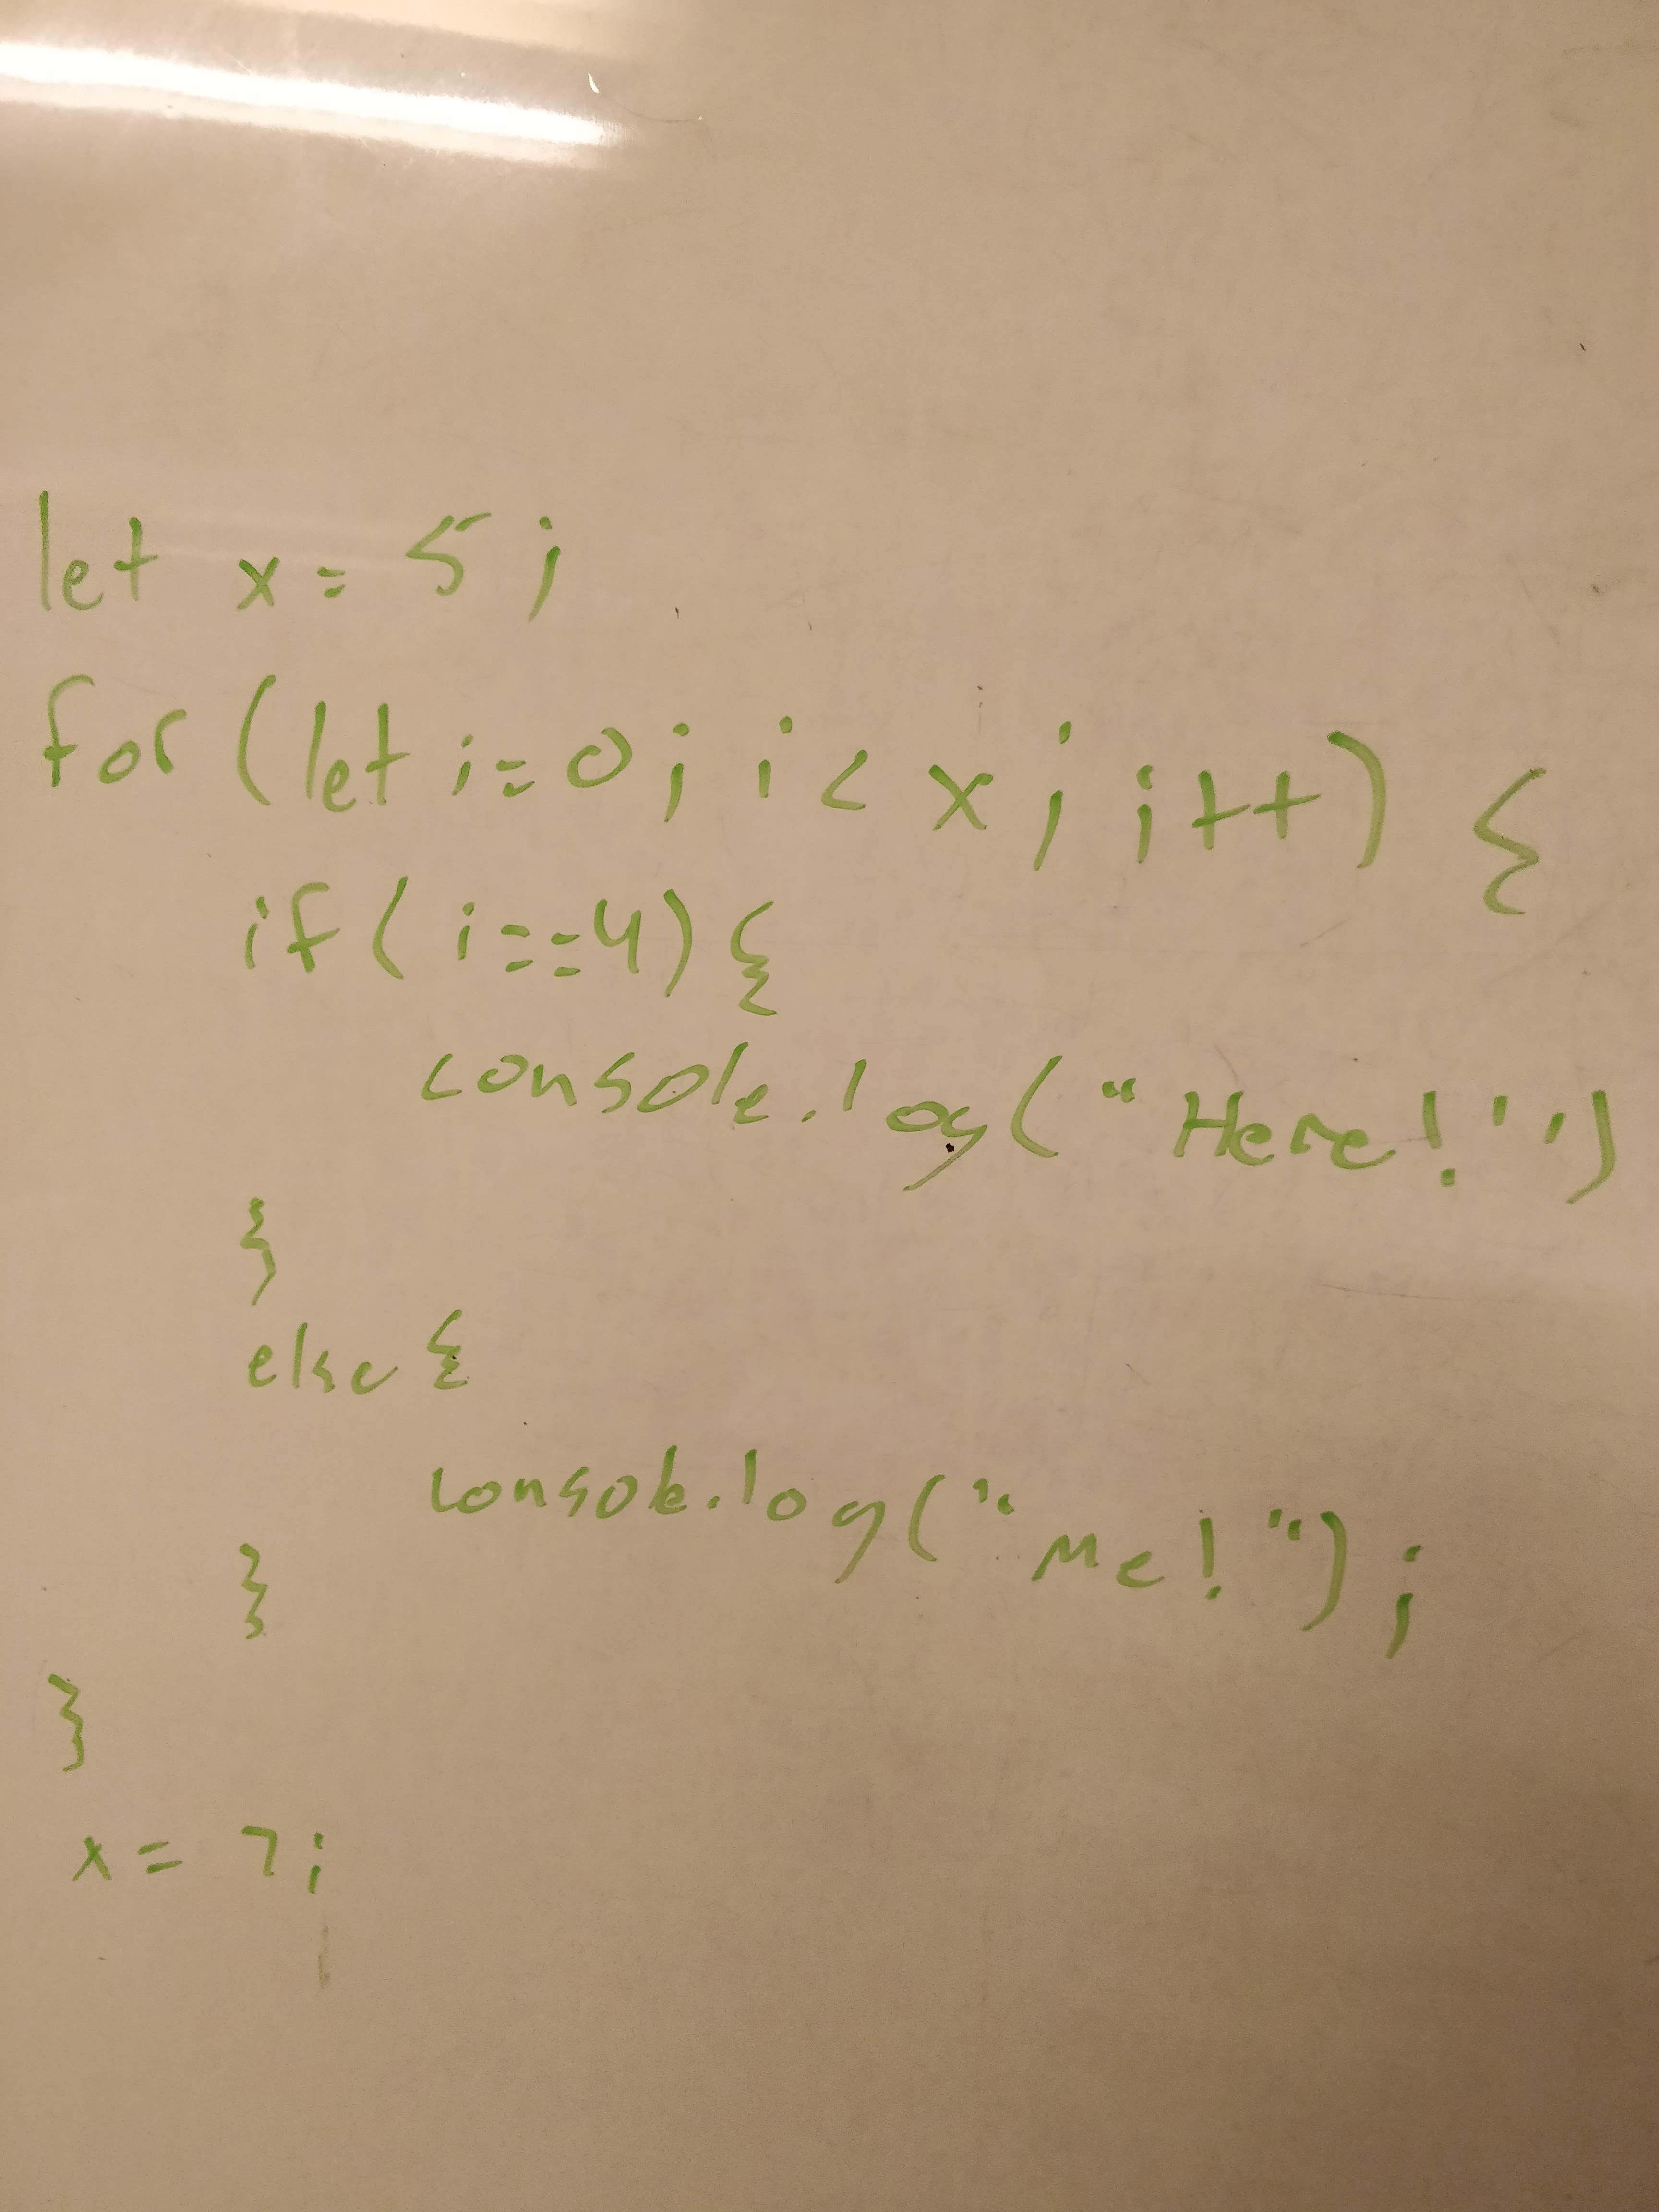 let x = 5;
for (let i=0; i < x; i++) {
if (i==4) {
console.log("Here!")
}
else {
console.log("Me!");
}
}
x = 7;